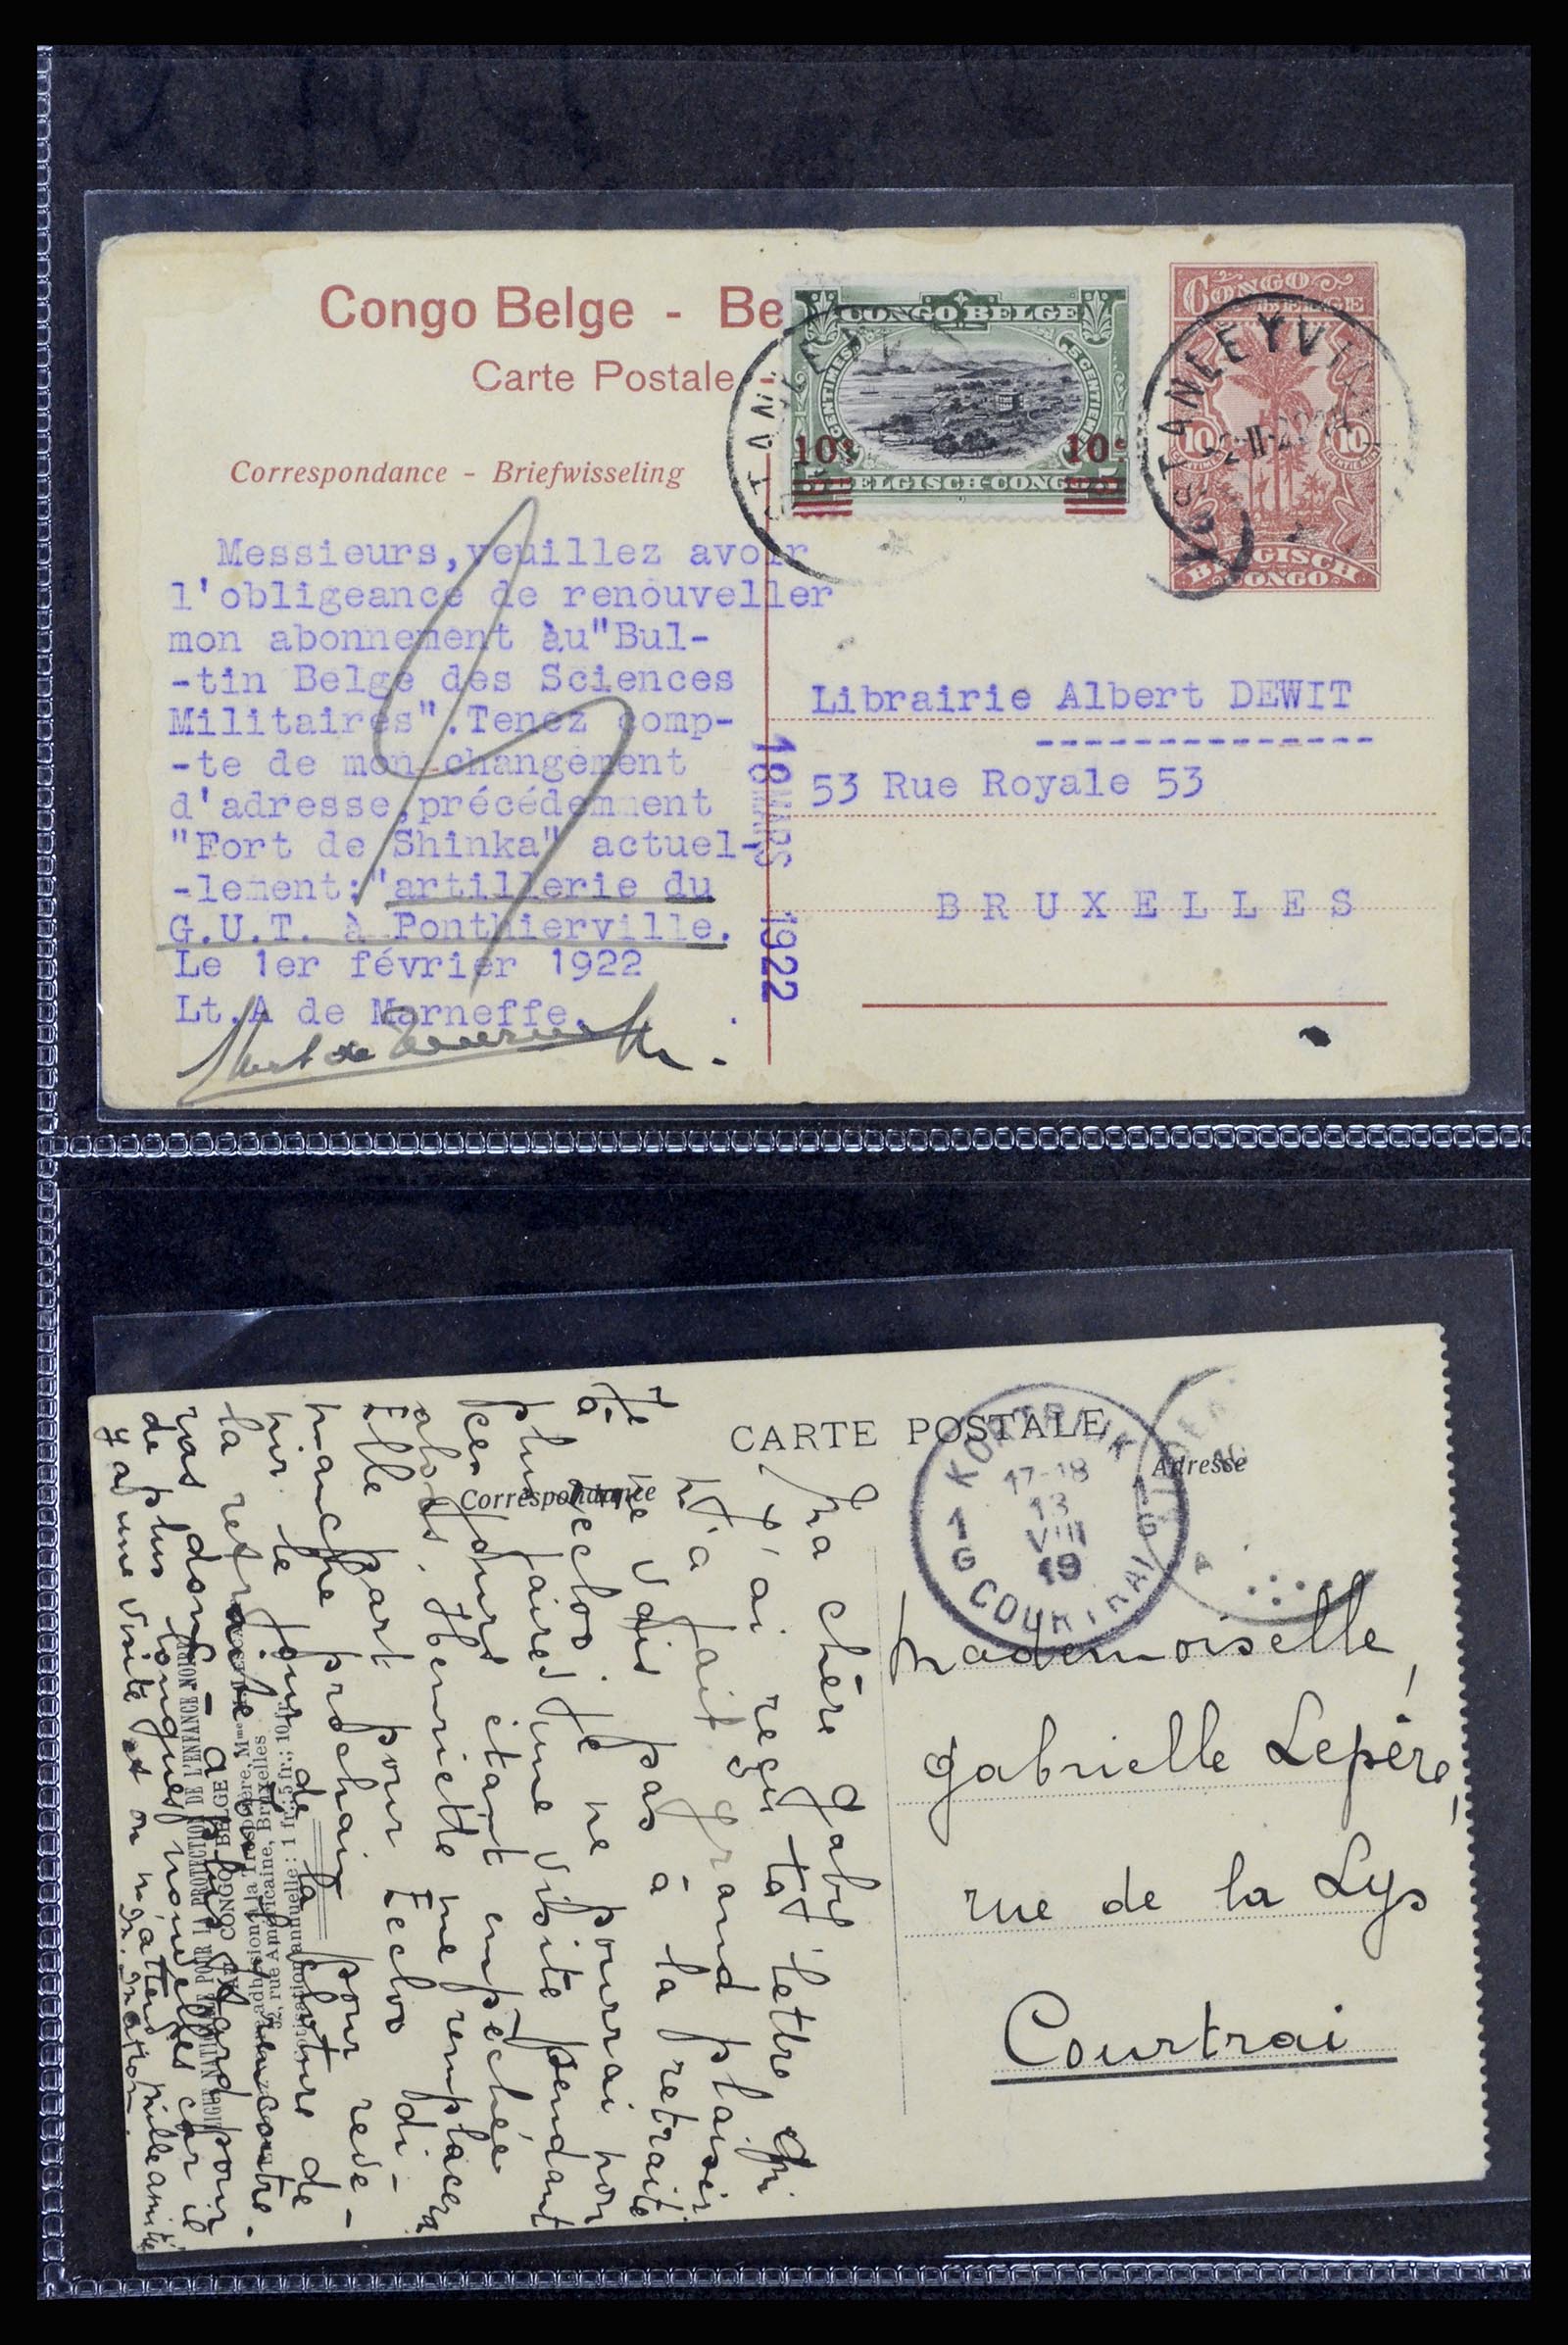 Congo Belge - Be
Carte Postale -
Correspondance - Briefwisseling
CONGO BELGE
5 CENTIMES
5 CENTIEMEN
10c 10c
BELGISCH-CONGO
CONGO
BELGE
10 10
BELGISCH
CONGO
STANLEYVI
STANLEYVI
Messieurs,veuillez avoir
l'obligeance de renouveller
mon abonnement àu"Bul-
-tin Belge des Sciences
Militaires".Tenez comp-
-te de mon changement
d'adresse,précédemment
"Fort de Shinka" actuel-
-lement:"artillerie du
G.U.T. à Ponthierville.
Le 1er février 1922
Lt.A de Marneffe.
18 MARS 1922
Librairie Albert DEWIT
--------------
53 Rue Royale 53
BRUXELLES
CARTE POSTALE
Correspondance
Adresse
KORTRIJK
17-18
13
VIII
19
1G 1G
COURTRAI
A
Mademoiselle,
Gabrielle Lepère,
rue de la Lys
Courtrai
Ma chère Gabr
J'ai reçu ta lettre qui
m'a fait grand plaisir
Je ne vais pas à la retraite
à Eecloo je ne pourrai non
plus faire une visite pendant
ces jours étant empêchée
alors. Henriette me remplacera
Elle part pour Eecloo di-
manche prochain pour reve-
nir le jour de la clôture de
la retraite
pas donc à plus tard pour
de plus longues nouvelles car il
y a une visite et on m'attend mille amitiés
POUR LA PROTECTION DE L'ENFANCE NOIRE
AU CONGO BELGE
adhésion à la Trésorière, Mme
32, rue Américaine, Bruxelles
annuelle : 1 fr.; 5 fr.; 10 fr.